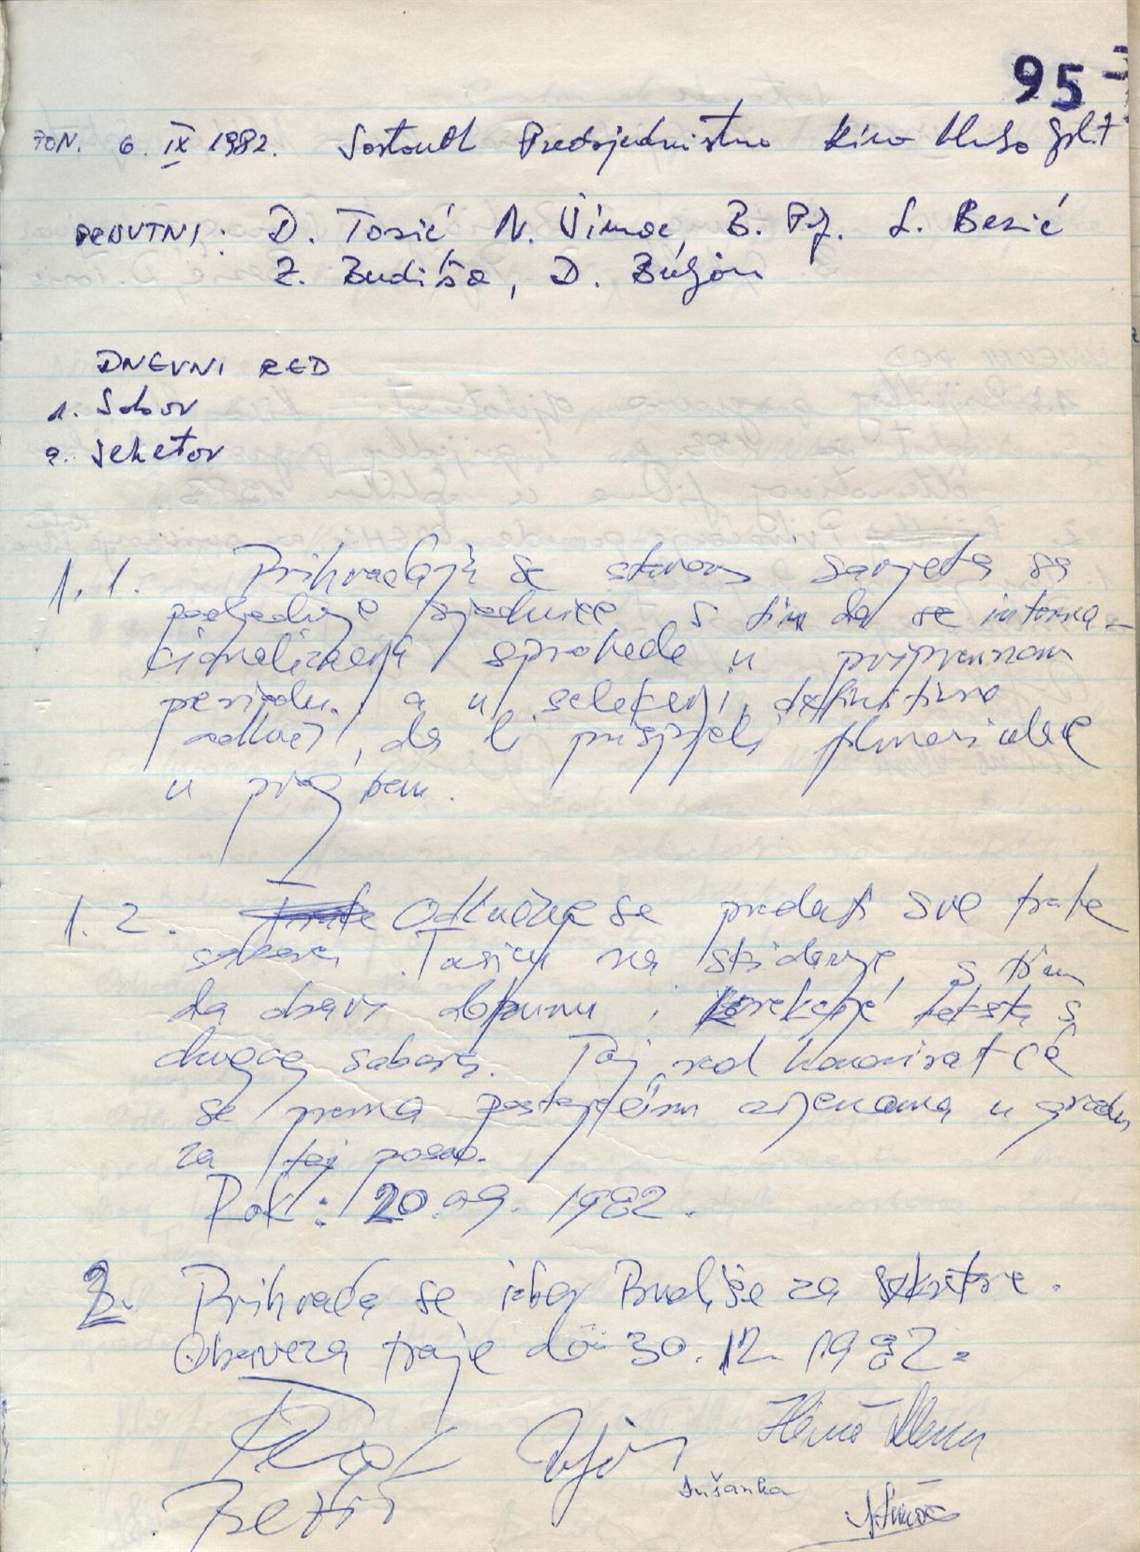 95
PON. 6. IX 1982. Sastanak Predsjedništva Kino kluba Split
PRISUTNI: D. Tasić N. Vimoc, B. P. L. Bezić
Z. Budiša, D.
DNEVNI RED
1. Sabor
2. Sekretar
1.1. Prihvaćaju se stavovi savjeta sa
posljednje sjednice, s tim da se interna-
cionalizacija sprovede u pripremnom
periodu, a u selekciji definitivno
odluči, da li prispjeli filmovi ulaze
u program.
1.2. Odlučuje se predati sve trake
sabora Tasiću na skidanje, s tim
da obavi dopunu i korekcije teksta s
drugog sabora. Taj rad honorirat će
se prema postojećim cijenama u gradu
za taj posao.
Rok: 20.09.1982.
2. Prihvaća se izbor Budiše za sekretara.
Obaveza traje do 30.12.1982.
Bezić
Dušanka